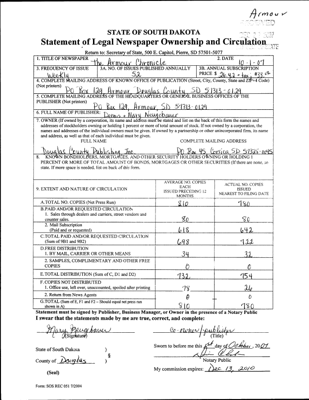 Armour
STATE OF SOUTH DAKOTA
Statement of Legal Newspaper Ownership and Circulation
Return to: Secretary of State, 500 E. Capitol, Pierre, SD 57501-5077
1. TITLE OF NEWSPAPER The Armour Chronicle 2. DATE 10-1-07
3. FREQUENCY OF ISSUE Weekly 3A. NO. OF ISSUES PUBLISHED ANNUALLY 52 3B. ANNUAL SUBSCRIPTION PRICE $
4. COMPLETE MAILING ADDRESS OF KNOWN OFFICE OF PUBLICATION (Street, City, County, State and ZIP+4 Code)
(Not printers) PO Box 129 Armour Douglas County SD 57313-0129
5. COMPLETE MAILING ADDRESS OF THE HEADQUARTERS OR GENERAL BUSINESS OFFICES OF THE
PUBLISHER (Not printer)
PO Box 129, Armour, SD 57313-0129
6. FULL NAME OF PUBLISHER: Dennis & Mary Neugebauer
7. OWNER (If owned by a corporation, its name and address must be stated and list on the back of this form the names and
addresses of stockholders owning or holding 1 percent or more of total amount of stock. If not owned by a corporation, the
names and addresses of the individual owners must be given. If owned by a partnership or other unincorporated firm, its name
and address, as well as that of each individual must be given.
FULL NAME COMPLETE MAILING ADDRESS
Douglas County Publishing Inc. PO Box 45, Corsica SD 57328-0045
8. KNOWN BONDHOLDERS, MORTGAGES, AND OTHER SECURITY HOLDERS OWNING OR HOLDING 1
PERCENT OR MORE OF TOTAL AMOUNT OF BONDS, MORTGAGES OR OTHER SECURITIES (If there are none, or
state. If more space is needed, list on back of this form.
9. EXTENT AND NATURE OF CIRCULATION
AVERAGE NO. COPIES EACH ISSUED PRECEDING 12 MONTHS
ACTUAL NO. COPIES ISSUED NEAREST TO FILING DATE
A. TOTAL NO. COPIES (Net Press Run) 810 780
B. PAID AND/OR REQUESTED CIRCULATION
1. Sales through dealers and carriers, street vendors and
counter sales 80 80
2. Mail Subscription
(Paid and or requested) 618 642
C. TOTAL PAID AND/OR REQUESTED CIRCULATION
(Sum of 9B1 and 9B2) 698 722
D. FREE DISTRIBUTION
1. BY MAIL, CARRIER OR OTHER MEANS 34 32
2. SAMPLES, COMPLIMENTARY AND OTHER FREE
COPIES 0 0
E. TOTAL DISTRIBUTION (Sum of C, D1 and D2) 732 754
F. COPIES NOT DISTRIBUTED
1. Office use, left over, unaccounted, spoiled after printing 78 26
2. Return from News Agents 0 0
G. TOTAL (Sum of E, F1 and F2 - Should equal net press run
shown in A) 810 780
Statement must be signed by Publisher, Business Manager, or Owner in the presence of a Notary Public
I swear that the statements made by me are true, correct, and complete:
Mary Neugebauer co-owner/publisher
(Signature) (Title)
State of South Dakota )
County of Douglas )
§
Sworn to before me this day of October, 2007
Notary Public
(Seal)
My commission expires: Dec 13, 2010
Form: SOS REC 051 7/2004